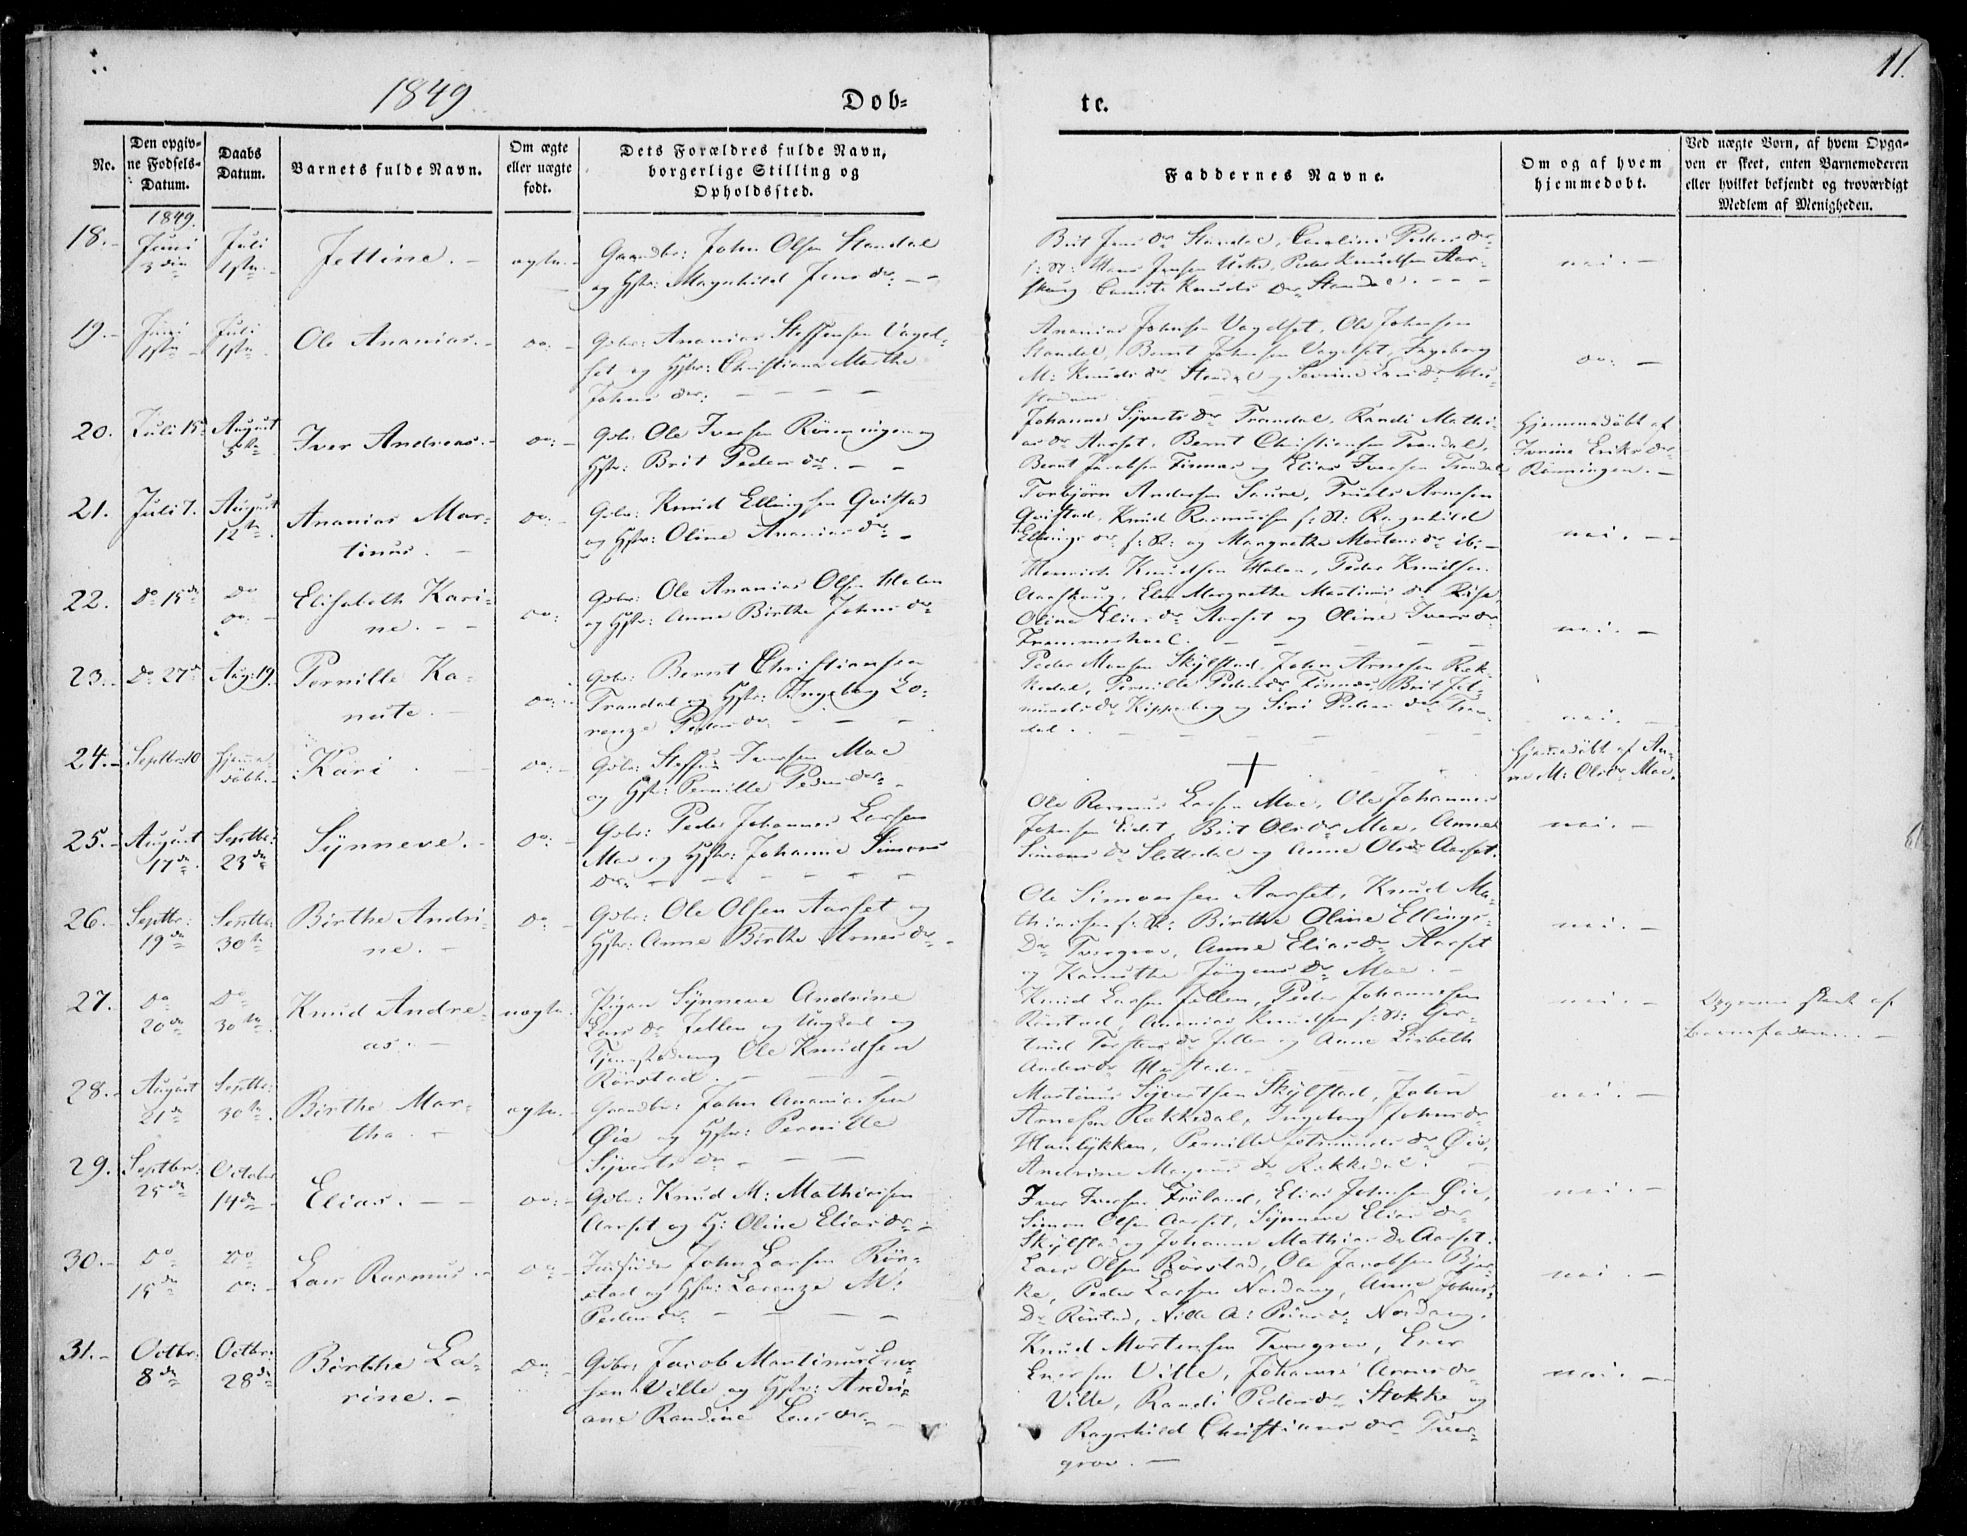 11.
1849
Døb=
te.
No.
Den opgiv=
ne Fødsels=
Datum.
Daabs
Datum.
Barnets fulde Navn.
Om ægte
eller uægte
født.
Dets Forældres fulde Navn,
borgerlige Stilling og
Opholdssted.
Faddernes Navne.
Om og af hvem
hjemmedøbt.
Ved uægte Børn, af hvem Opga=
ven er skeet, enten Barnemoderen
eller hvilket bekjendt og troværdigt
Medlem af Menigheden.
1849.
18.
Juni
3die
Juli
1ste
Jettine.
ægte.
Gaardbr: John Olsen Standal
og Hstr: Magnhild Jens dr.
Brit Jens dr Standal, Caroline Peders dr
f: St: Hans Jensen Peder Knudsen Aar-
skoug Knuds dr Standal.
nei.
19.
Juni
1ste
Juli
1ste
Ole Ananias.
do:
Gbr: Ananias Steffensen Vagel-
set og Hstr: Christiana Marthe
Johns dr:
Ananias Johnsen Vagelset, Ole Johnsen
Standal, Bernt Johnsen Vagelset, Ingeborg
M: Knuds dr Standal og Severine Lars dr
do:
20.
Juli 15de
August
5te
Iver Andreas.
do:
Gbr: Ole Iversen Rönningen og
Hstr: Brit Peders dr.
Johanne Syverts dr Trandal, Randi Mathi-
as dr Aarset, Bernt Christiansen Trandal,
Bernt Jacobsen Finnes og Elias Iversen Trandal
Hjemmedöbt af
Eriks dr
Rönningen.
21.
Juli 7.
August
12te
Ananias Mar-
tinus.
do:
Gbr: Knud Ellingsen Qvistad
og Hstr: Oline Ananias dr.
Torbjörn Andersen Saure, Truels Arnesen
Qvistad, Knud Rasmussen f: St: Ragnhild
Ellings dr f: St: og Margrethe Mortens dr ib:
nei.
22.
Do 15de
Do
do:
Elisabeth Kari-
ne.
do:
Gbr: Ole Ananias Olsen Molen
og Hstr: Anne Birthe Johns dr
Henrich Knudsen Molen, Peder Knudsen
Aarskoug, Elen Margrethe Martinus dr Riise,
Oline Elias dr Aarset og Oline Ivers dr
nei.
23.
Do 27de
Aug: 19.
Pernille Ka-
nute.
do:
Gbr: Bernt Christiansen
Trandal og Hstr: Ingeborg Lo-
renze Peders dr
Peder Monsen Skylstad, John Arnesen Rek-
kedal, Pernille Peders dr Finnes, Brit Jet-
munds dr Kippeberg og Siri Peders dr Tran-
dal.
nei.
24.
Septbr: 10
Hjemme-
döbt.
Kari.
do:
Gbr: Steffen Iversen Moe
og Hstr: Pernille Peders dr
+
Hjemmedöbt af An-
ne M: Ols dr Moe.
25.
August
17de
Septbr:
23de
Synneve.
do:
Gbr: Peder Johannes Larsen
Moe og Hstr: Johanne Simons
dr:
Ole Rasmus Larsen Moe, Ole Johannes
Johnsen Eidet, Brit Ols dr Moe, Anne
Simons dr Slettedal og Anne Ols dr Aarset.
nei.
26.
Septbr:
19de
Septbr
30te
Birthe Andri-
ne.
do
Gbr: Ole Olsen Aarset og
Hstr: Anne Birthe Arnes dr
Ole Simonsen Aarset, Knud Ma-
thiassen f: St: Birthe Oline Ellings-
Dr Tvergrov, Anne Elias dr Aarset
og Kanuthe Jörgens dr Moe.
nei.
27.
Do
20de
Do
30te
Knud Andre-
as.
uægte.
Pigen Synneve Andrine
Lars dr Jellen og Ungkarl og
Ole Knudsen
Rörstad.
Knud Larsen Jellen, Peder Johannesen
Rörstad, Ananias Knudsen f: St: Ger-
trud Torstens dr Jellen og Anne Lisbeth
Anders dr
nei.
Opgaven skeet af
Barnefaderen.
28.
August
21de
Septbr:
30te
Birthe Mar-
tha.
ægte.
Gaardbr: John Ananiassen
Öie og Hstr: Pernille
Syverts dr
Martinus Syvertsen Skylstad, John
Arnesen Rekkedal, Ingeborg Johns dr
Hanlykken, Pernille Jetmunds dr Öie,
Andrine Magnus dr Rekkedal.
nei.
29.
Septbr:
25de
October
14de
Elias.
do:
Gbr: Knud M: Mathiassen
Aarset og H: Oline Elias dr
Iver Iversen Elias Johnsen Öie,
Simon Olsen Aarset, Synneve Elias dr
Skylstad og Johanne Mathias Dr Aarset.
nei.
30.
Do
15de
Do
do:
Lars Rasmus.
do
John Larsen Rör-
stad og Hstr: Lorenze M:
Peders dr
Lars Olsen Rörstad, Ole Jacobsen Bjer-
ke, Peder Larsen Nordang, Anne Johns-
Dr Rörstad, Nille A: Peders dr Nordang.
nei.
31.
Octbr:
8de
Octbr:
28de
Birthe La-
rine.
Do
Gbr: Jacob Martinus Ener-
sen Ville og Hstr: Andri-
ane Randine Lars dr
Knud Mortensen Tvergrov, Ener
Enersen Ville, Johanne Arnes dr
Ville, Randi Peders dr Stokke og
Ragnhild Christians dr Tver-
grov.
nei.